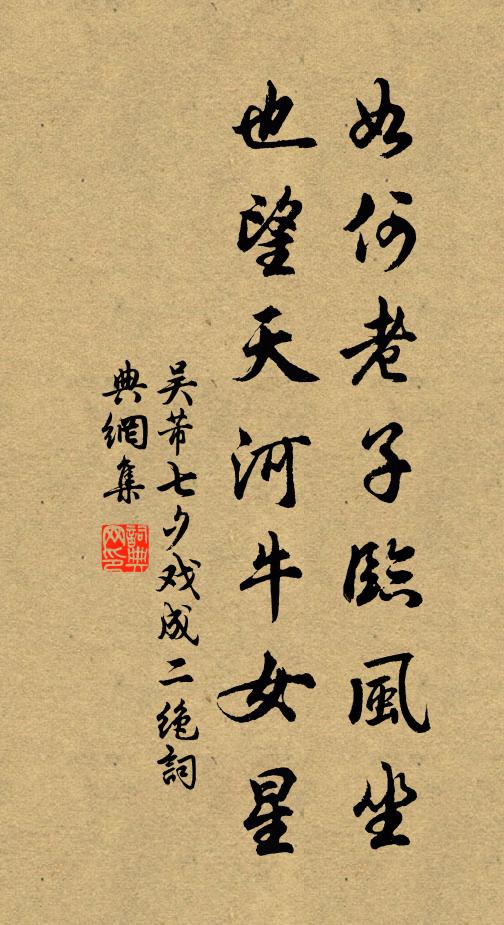 如何老子臨風坐
也望天河牛女星
吴芾七夕戏成二絶詞
典網集
詞典
网印